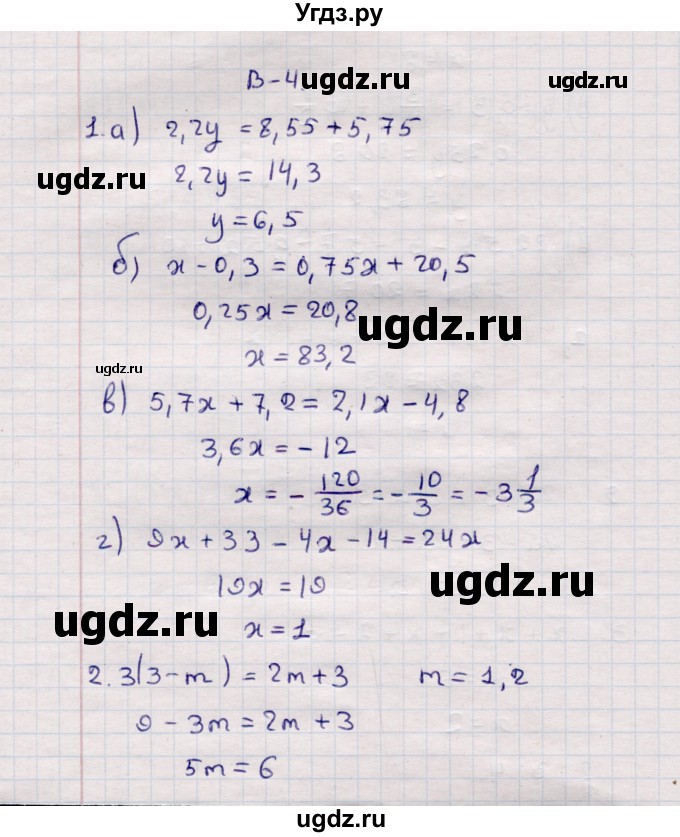 Угдз.ру
В-4 ugdz.ru ugdz.ru
1.а) 2,2y = 8,55 + 5,75
ugdz.ru 2,2y = 14,3
y = 6,5
б) x - 0,3 = 0,75x + 20,5
0,25x = 20,8
ugdz.ru
x = 83,2
ugdz.ru
в) 5,7x + 7,2 = 2,1x - 4,8
3,6x = -12
x = -120/36 = -10/3 = -3 1/3
г) 9x + 33 - 4x - 14 = 24x
19x = 19 ugdz.ru
ugdz.ru x = 1
2. 3(3-m) = 2m + 3 m = 1,2
9 - 3m = 2m + 3
5m = 6
ugdz.ru